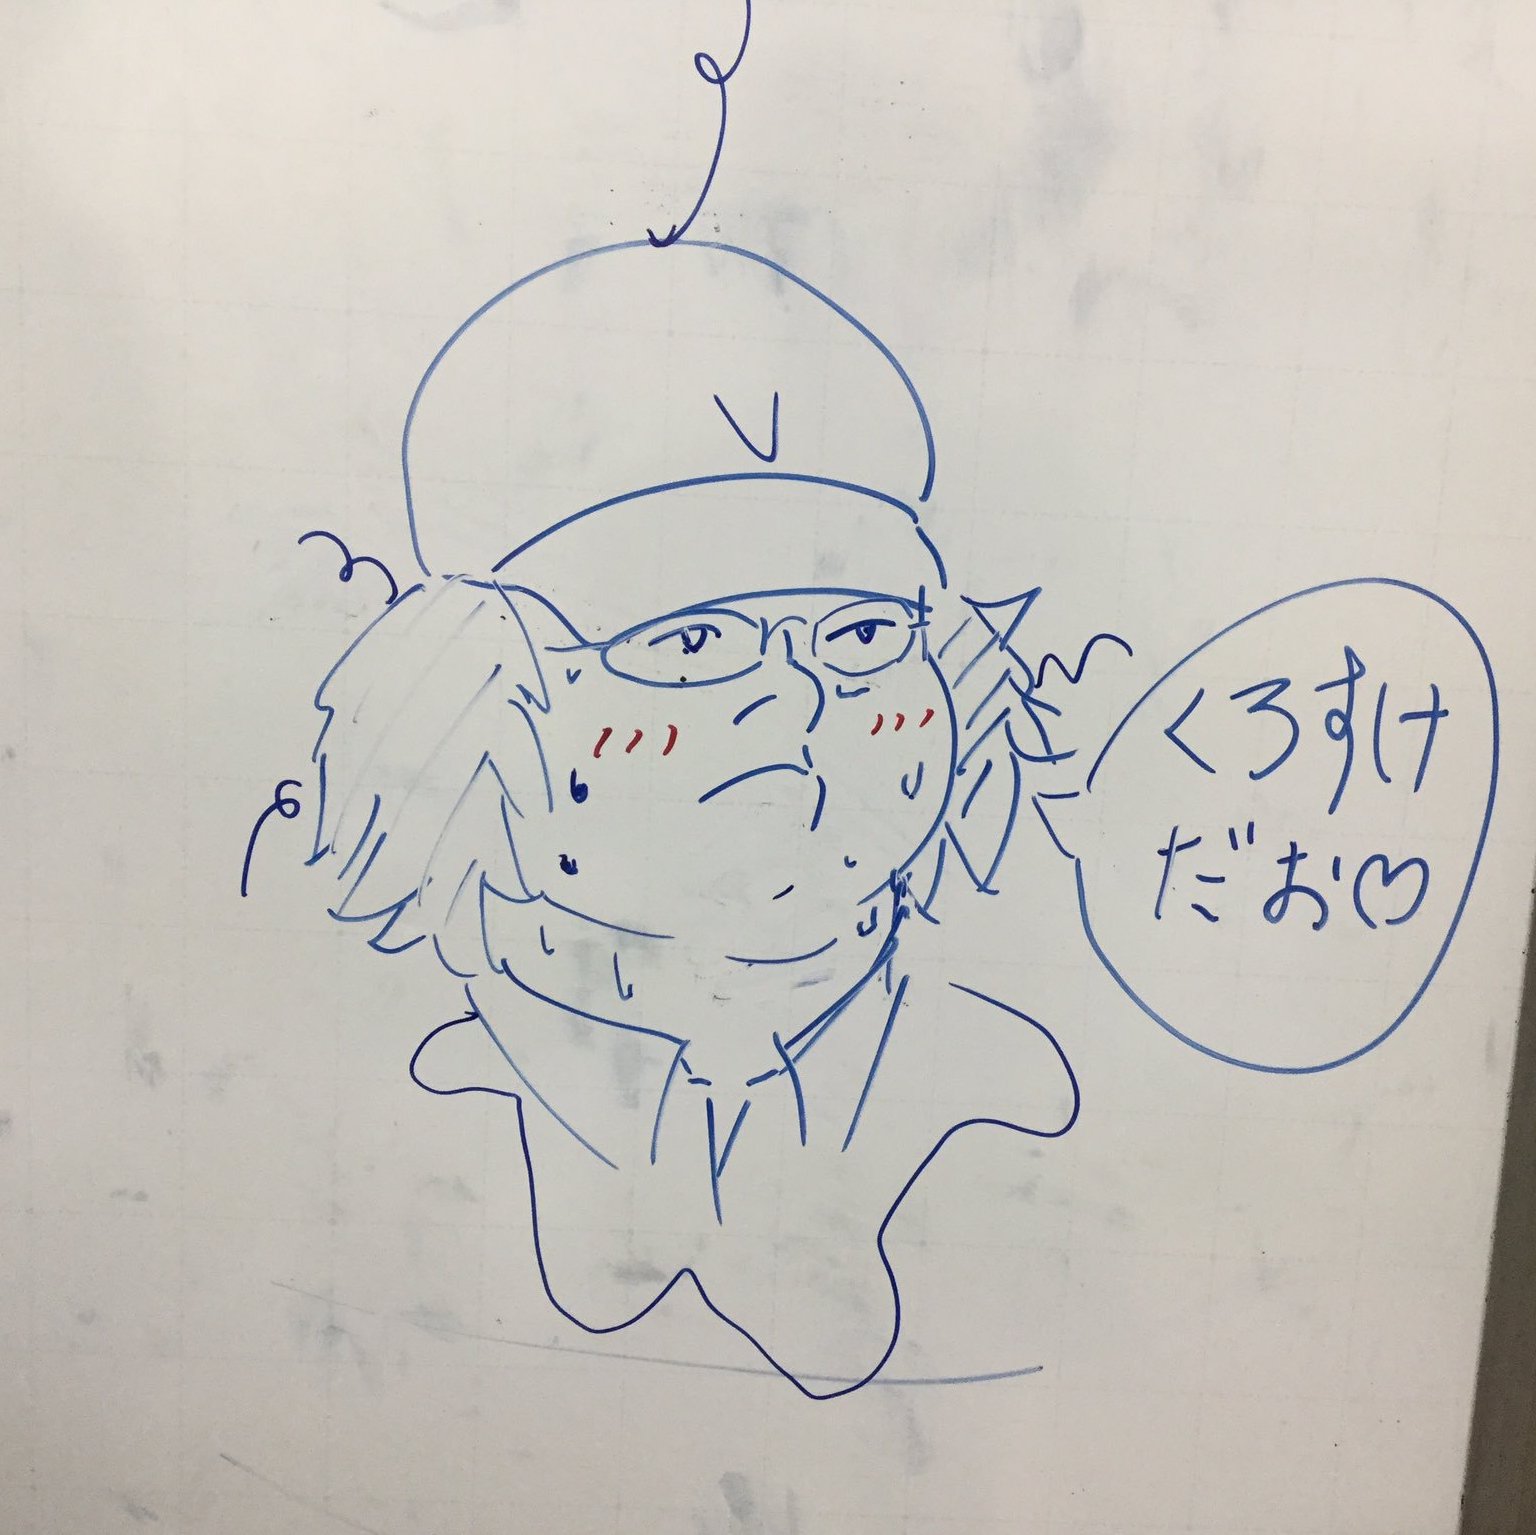 V
くろすけ
だお♡